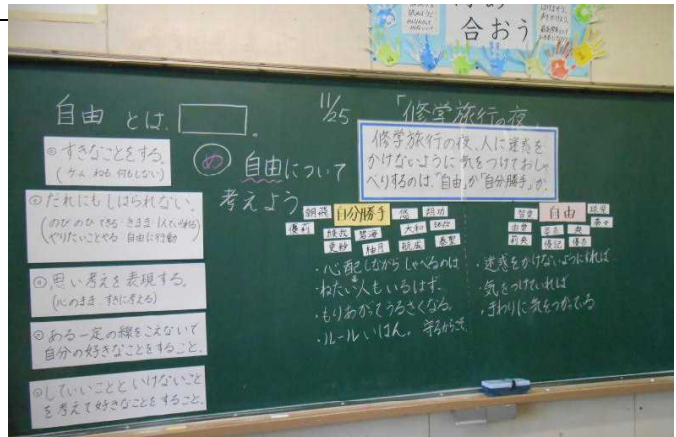 合おう
自由 とは、
。
11/25 「修学旅行の夜」
め 自由について
考えよう
修学旅行の夜、人に迷惑を
かけないように気をつけておしゃ
べりするのは、「自由」か「自分勝手」か。
◎すきなことをする。
(ゲーム ねる 何もしない)
◎だれにもしばられない。
(のびのびできる・きまま
やりたいことやる 自由に行動
◎思い考えを表現する。
(心のまま、すきに考える)
◎ある一定の線をこえないで
自分の好きなことをすること。
◎していいことといけないこと
を考えて好きなことをすること。
自分勝手
優莉
碧海
大和
柚月
航成
・心配しながらしゃべるのは
・ねたい人もいるはず。
・もりあがってうるさくなる。
・ルールいはん。
自由
莉央
優記
・迷惑をかけないようにすれば
・気をつけていれば
・まわりに気をつかっている